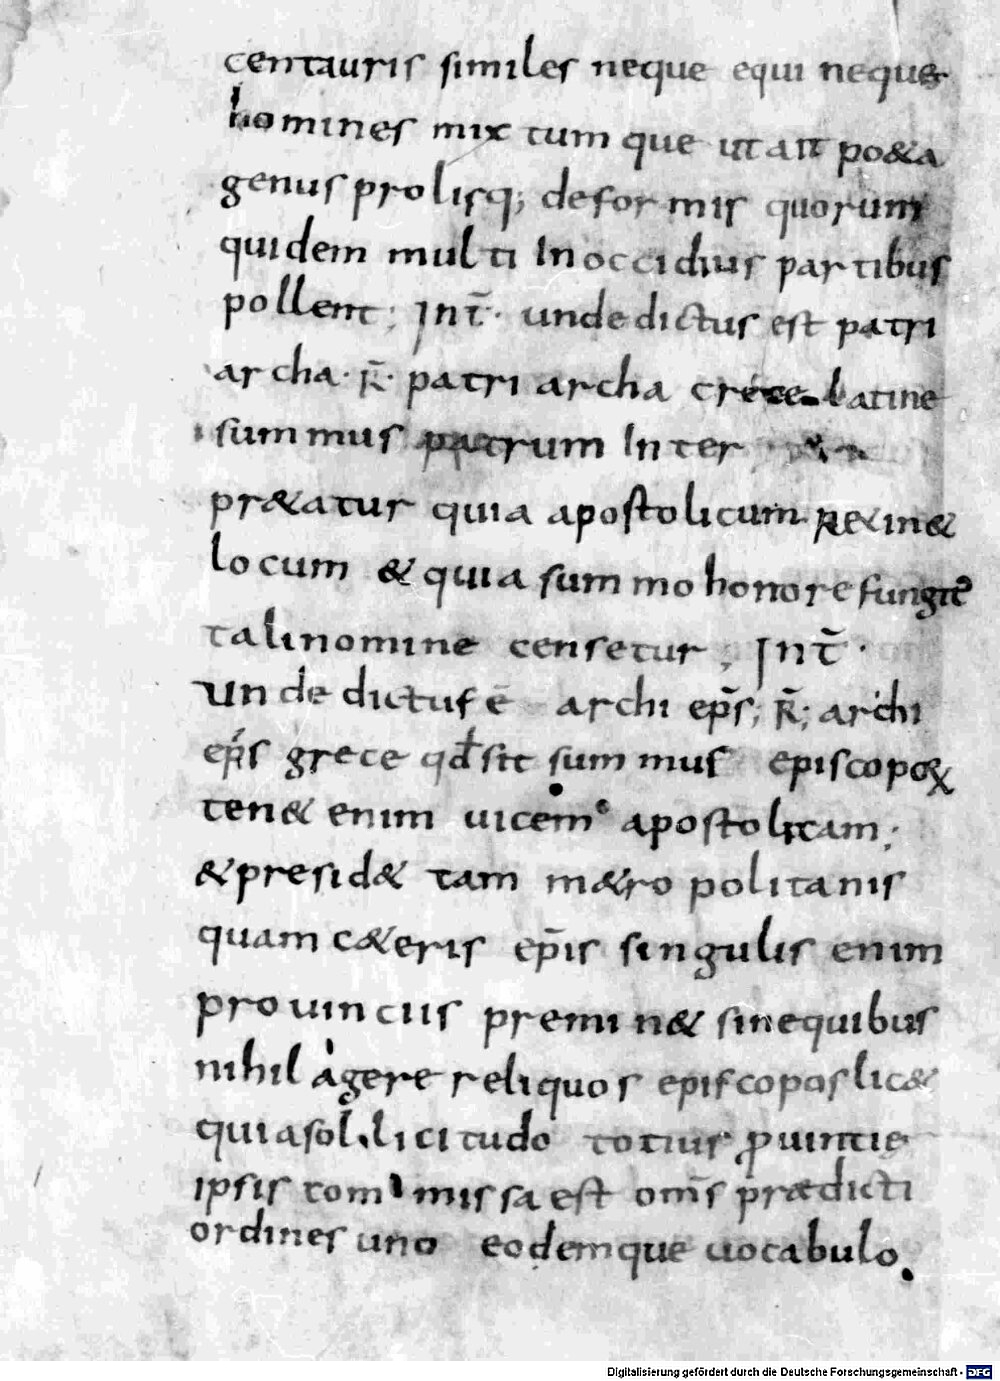 centauris similes neque equi neque
homines mixtum que ut ait po&a
genus prolisq; deformis quorum
quidem multi In occiduis partibus
pollent; Int̄· unde dictus est patri
archa· R̄· patri archa crece latine
summus patrum Inter
pr&atur quia apostolicum r&in&
locum & quia summo honore fungit᷒
tali nomine censetur; Int̄·
unde dictus ē archi ep̄s; R̄; archi
ep̄s grece qđ sit summus episcopoꝝ
ten& enim uicem apostolicam;
& presid& tam m&ropolitanis
quam c&eris ep̄is singulis enim
prouinciis premin& sine quibus
nihil agere reliquos episcopos lic&
quia sollicitudo totius ꝓuintie
ipsis commissa est om̄s prædicti
ordines uno eodemque uocabulo.
Digitalisierung gefördert durch die Deutsche Forschungsgemeinschaft - DFG